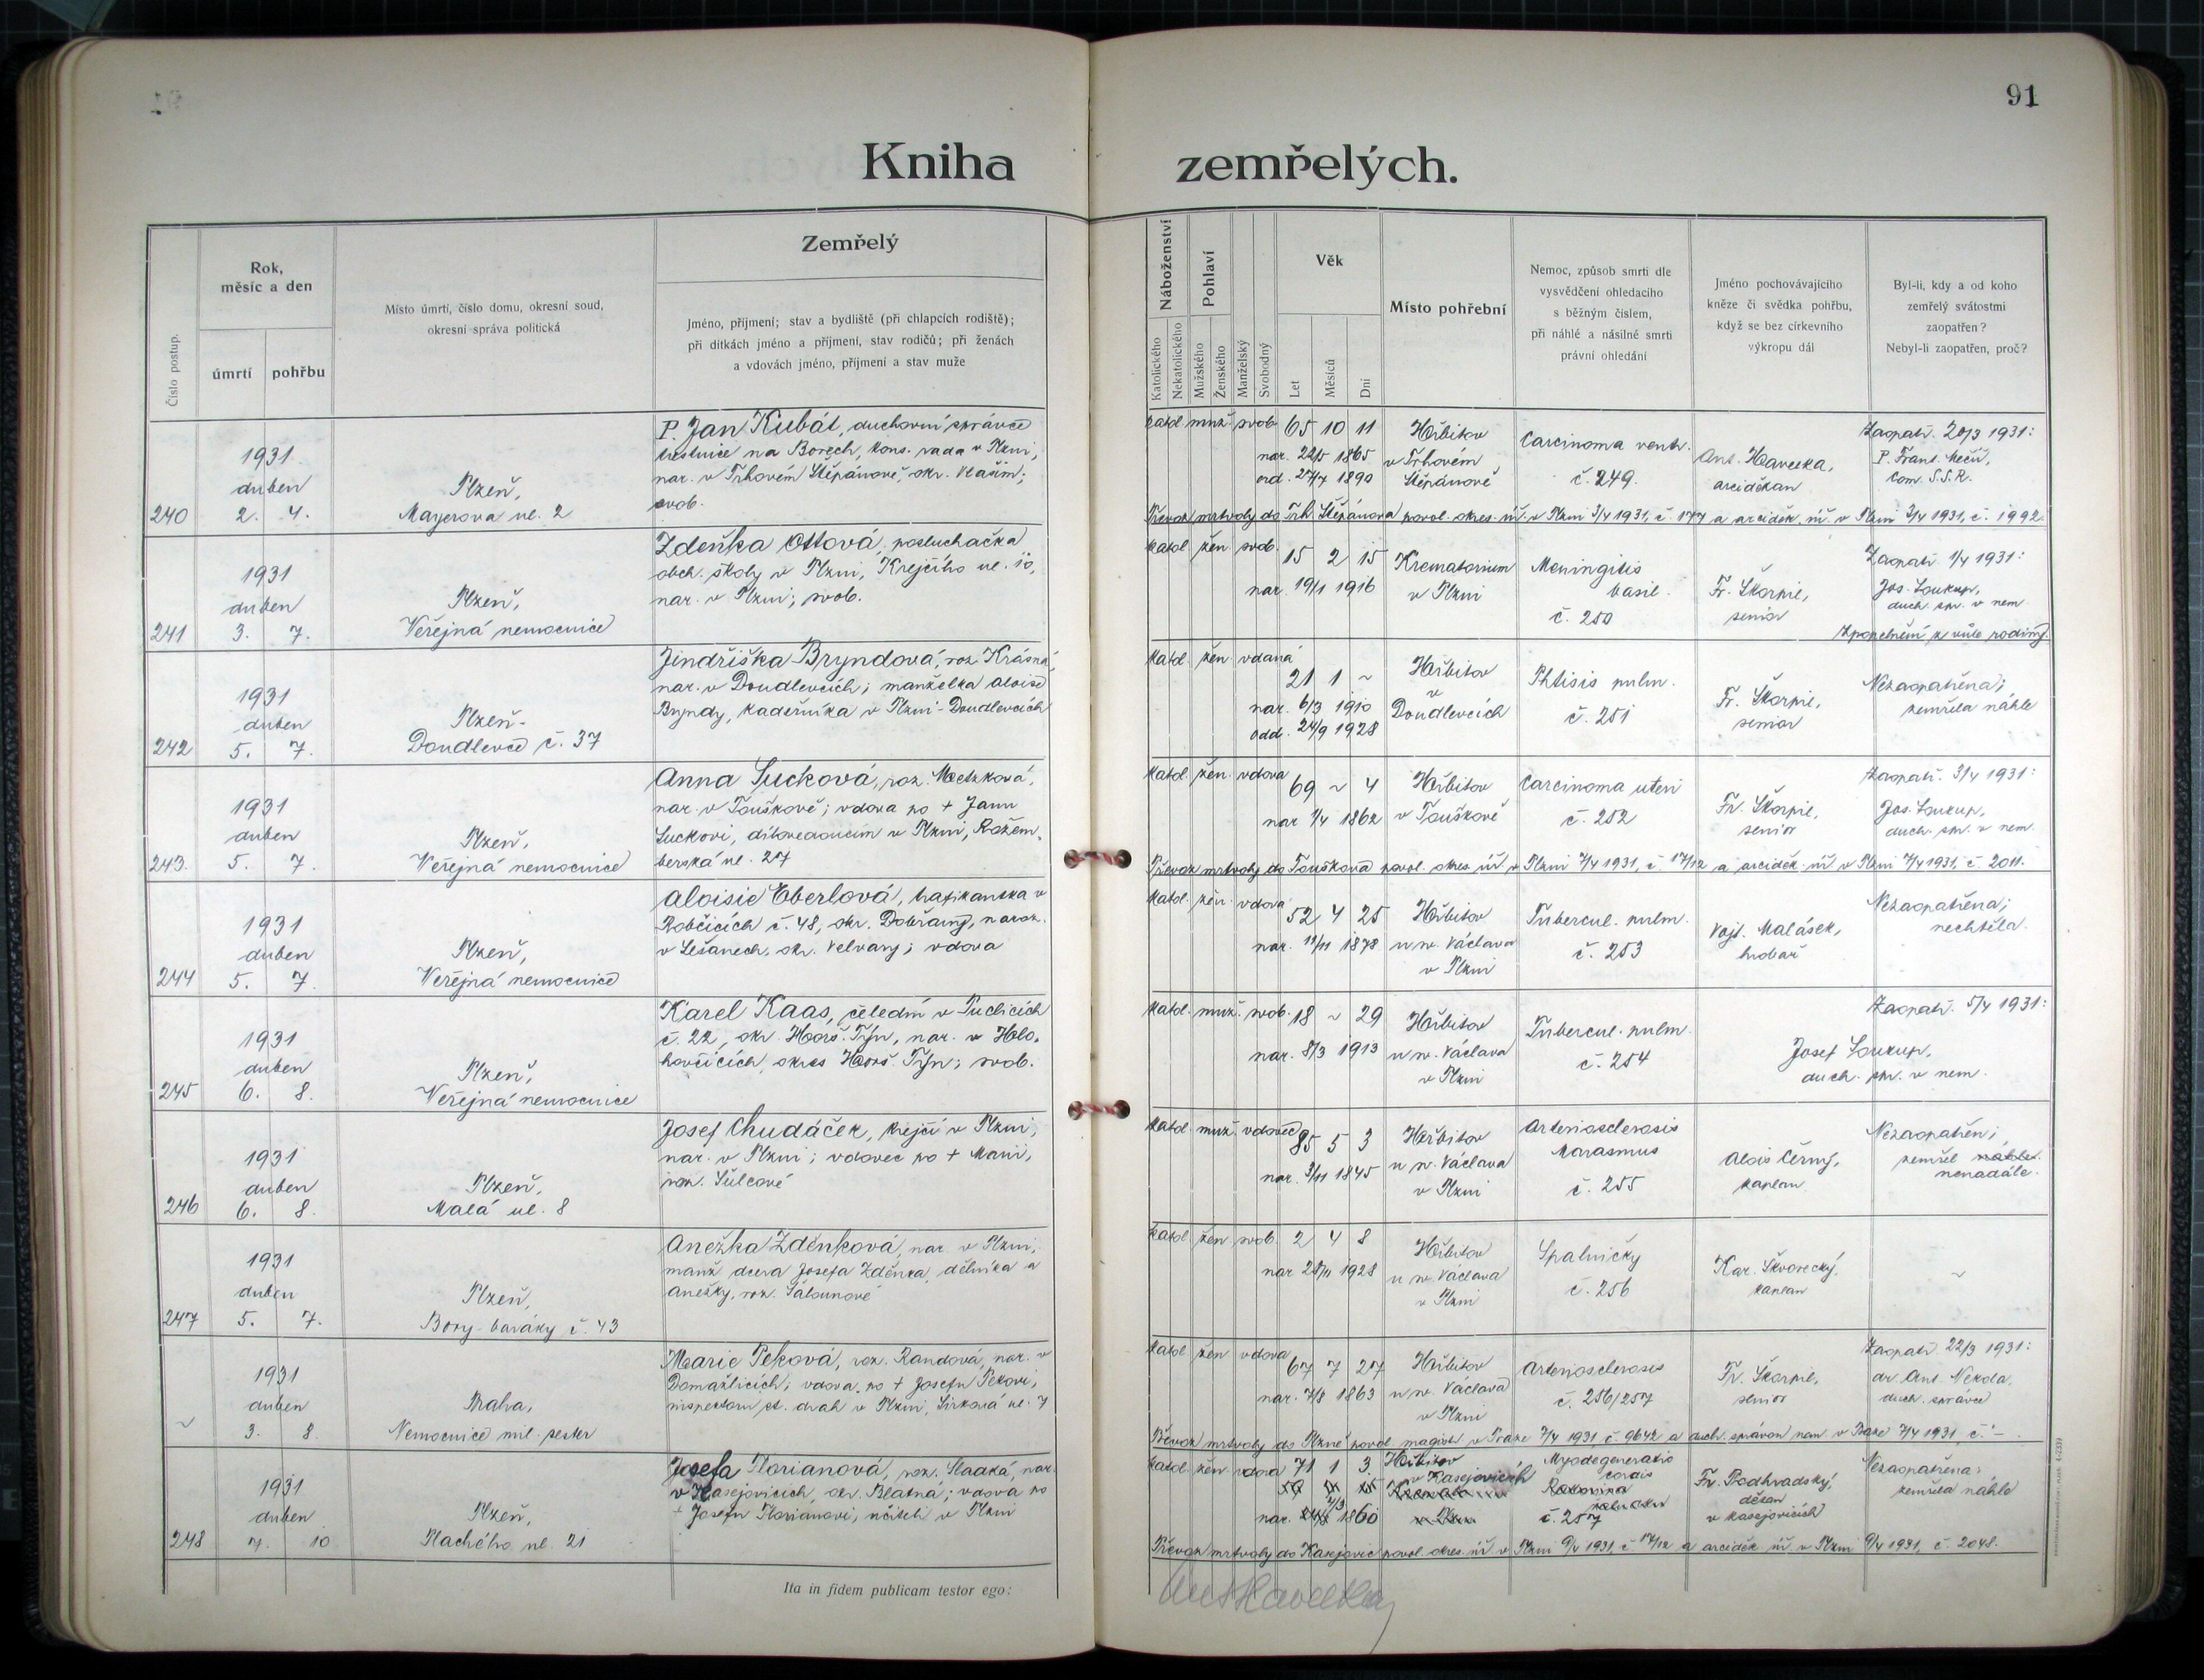 91
Kniha zemřelých.
Číslo postup.
Rok,
měsíc a den
úmrtí
pohřbu
Místo úmrtí, číslo domu, okresní soud,
okresní správa politická
Zemřelý
Jméno, příjmení; stav a bydliště (při chlapcích rodiště);
při dítkách jméno a příjmení, stav rodičů; při ženách
a vdovách jméno, příjmení a stav muže
Náboženství
Katolického
Nekatolického
Pohlaví
Mužského
Ženského
Manželský
Svobodný
Věk
Let
Měsíců
Dní
Místo pohřební
Nemoc, způsob smrti dle
vysvědčení ohledacího
s běžným číslem,
při náhlé a násilné smrti
právní ohledání
Jméno pochovávajícího
kněze či svědka pohřbu,
když se bez církevního
výkropu dál
Byl-li, kdy a od koho
zemřelý svátostmi
zaopatřen?
Nebyl-li zaopatřen, proč?
240
1931
duben
2. 4.
Plzeň,
Mayerova ul. 2
P. Jan Kubát, duchovní správce
trestnice na Borech, kons. rada v Plzni,
nar. v Trhovém Štěpánově, okr. Vlašim;
svob.
katol. muž. svob. 65 10 11
nar. 22/5 1865
ord. 27/7 1890
Hřbitov
v Trhovém
Štěpánově
Carcinoma ventr.
č. 249.
Ant. Havelka,
arciděkan
Zaopatř. 20/3 1931:
P. Frant. Mečíř,
Com. S.S.R.
Převoz mrtvoly do Trh. Štěpánova povol. okres. úř. v Plzni 3/4 1931, č. 177 a arciděk. úř. v Plzni 3/4 1931, č. 1992.
241
1931
duben
3. 7.
Plzeň,
Veřejná nemocnice
Zdeňka Ottová, posluchačka
obch. školy v Plzni, Krejčího ul. 10,
nar. v Plzni; svob.
katol. žen. svob. 15 2 15
nar. 19/1 1916
Krematorium
v Plzni
Meningitis
basil.
č. 250
Fr. Škorpil,
senior
Zaopatř. 1/4 1931:
Jos. Soukup,
duch. spr. v nem.
Zpopelnění z vůle rodiny.
242
1931
duben
5. 7.
Plzeň-
Doudlevce č. 37
Jindřiška Bryndová, roz. Krásná,
nar. v Doudlevcích; manželka Aloise
Bryndy, kadeřníka v Plzni-Doudlevcích
katol. žen. vdaná
21 1 ~
nar. 6/3 1910
odd. 24/9 1928
Hřbitov
v
Doudlevcích
Phtisis pulm.
č. 251
Fr. Škorpil,
senior
Nezaopatřena;
zemřela náhle
243.
1931
duben
5. 7.
Plzeň,
Veřejná nemocnice
Anna Sucková, roz. Metzková,
nar. v Touškově; vdova po + Janu
Suckovi, dílovedoucím v Plzni, Rožem-
berská ul. 27
katol. žen. vdova
69 ~ 4
nar. 1/4 1862
Hřbitov
v Touškově
Carcinoma uteri
č. 252
Fr. Škorpil,
senior
Zaopatř. 3/4 1931:
Jos. Soukup,
duch. spr. v nem.
Převoz mrtvoly do Touškova povol. okres. úř. v Plzni 7/4 1931, č. 17/12 a arciděk. úř. v Plzni 7/4 1931, č. 2011.
244
1931
duben
5. 7.
Plzeň,
Veřejná nemocnice
Aloisie Eberlová, trafikantka v
Robčicích č. 48, okr. Dobřany, naroz.
v Lešanech, okr. Velvary; vdova
katol. žen. vdova
52 4 25
nar. 11/11 1878
Hřbitov
u sv. Václava
v Plzni
Tubercul. pulm.
č. 253
Vojt. Malásek,
hrobař
Nezaopatřena;
nechtěla.
245
1931
duben
6. 8.
Plzeň,
Veřejná nemocnice
Karel Kaas, čeledín v Puclicích
č. 22, okr. Horš. Týn, nar. v Holo-
hovčicích, okres Horš. Týn; svob.
katol. muž. svob. 18 ~ 29
nar. 8/3 1913
Hřbitov
u sv. Václava
v Plzni
Tubercul. pulm.
č. 254
Zaopatř. 5/4 1931:
Josef Soukup,
duch. spr. v nem.
246
1931
duben
6. 8.
Plzeň,
Malá ul. 8
Josef Chudáček, krejčí v Plzni,
nar. v Plzni; vdovec po + Marii,
roz. Šulcové
katol. muž. vdovec 85 5 3
nar. 3/11 1845
Hřbitov
u sv. Václava
v Plzni
Arteriosclerosis
Marasmus
č. 255
Alois Černý,
kaplan
Nezaopatřen;
zemřel náhle.
nenadále.
247
1931
duben
5. 7.
Plzeň,
Bory-baráky č. 43
Anežka Zděnková, nar. v Plzni,
manž. dcera Josefa Zděnka, dělníka a
Anežky, roz. Šalounové
katol. žen. svob. 2 4 8
nar. 28/11 1928
Hřbitov
u sv. Václava
v Plzni
Spalničky
č. 256
Kar. Škvorecký,
kaplan
~
~
1931
duben
3. 8.
Praha,
Nemocnice mil. sester
Marie Peková, roz. Randová, nar. v
Domažlicích; vdova po + Josefu Pekovi,
inspektoru st. drah v Plzni, Sirková ul. 7
katol. žen. vdova
67 7 27
nar. 7/8 1863
Hřbitov
u sv. Václava
v Plzni
Arteriosclerosis
č. 256/257
Fr. Škorpil,
senior
Zaopatř. 22/3 1931:
dr. Ant. Nekola,
duch. správce
Převoz mrtvoly do Plzně povol. magistr. v Praze 7/4 1931, č. 9642 a duch. správou nem. v Praze 7/4 1931, č. –.
248
1931
duben
7. 10
Plzeň,
Plachého ul. 21
Josefa Florianová, roz. Sladká, nar.
v Kasejovicích, okr. Blatná; vdova po
+ Josefu Florianovi, učiteli v Plzni
katol. žen. vdova 71 1 3.
nar. 1860
Hřbitov
v Kasejovicích
Myodegeneratio
cordis
č. 257
Fr. Podhradský,
děkan
v Kasejovicích
Nezaopatřena;
zemřela náhle
Převoz mrtvoly do Kasejovic povol. okres. úř. v Plzni 9/4 1931, č. 17/12 a arciděk. úř. v Plzni 9/4 1931, č. 2048.
Ita in fidem publicam testor ego:
Ant Havelka